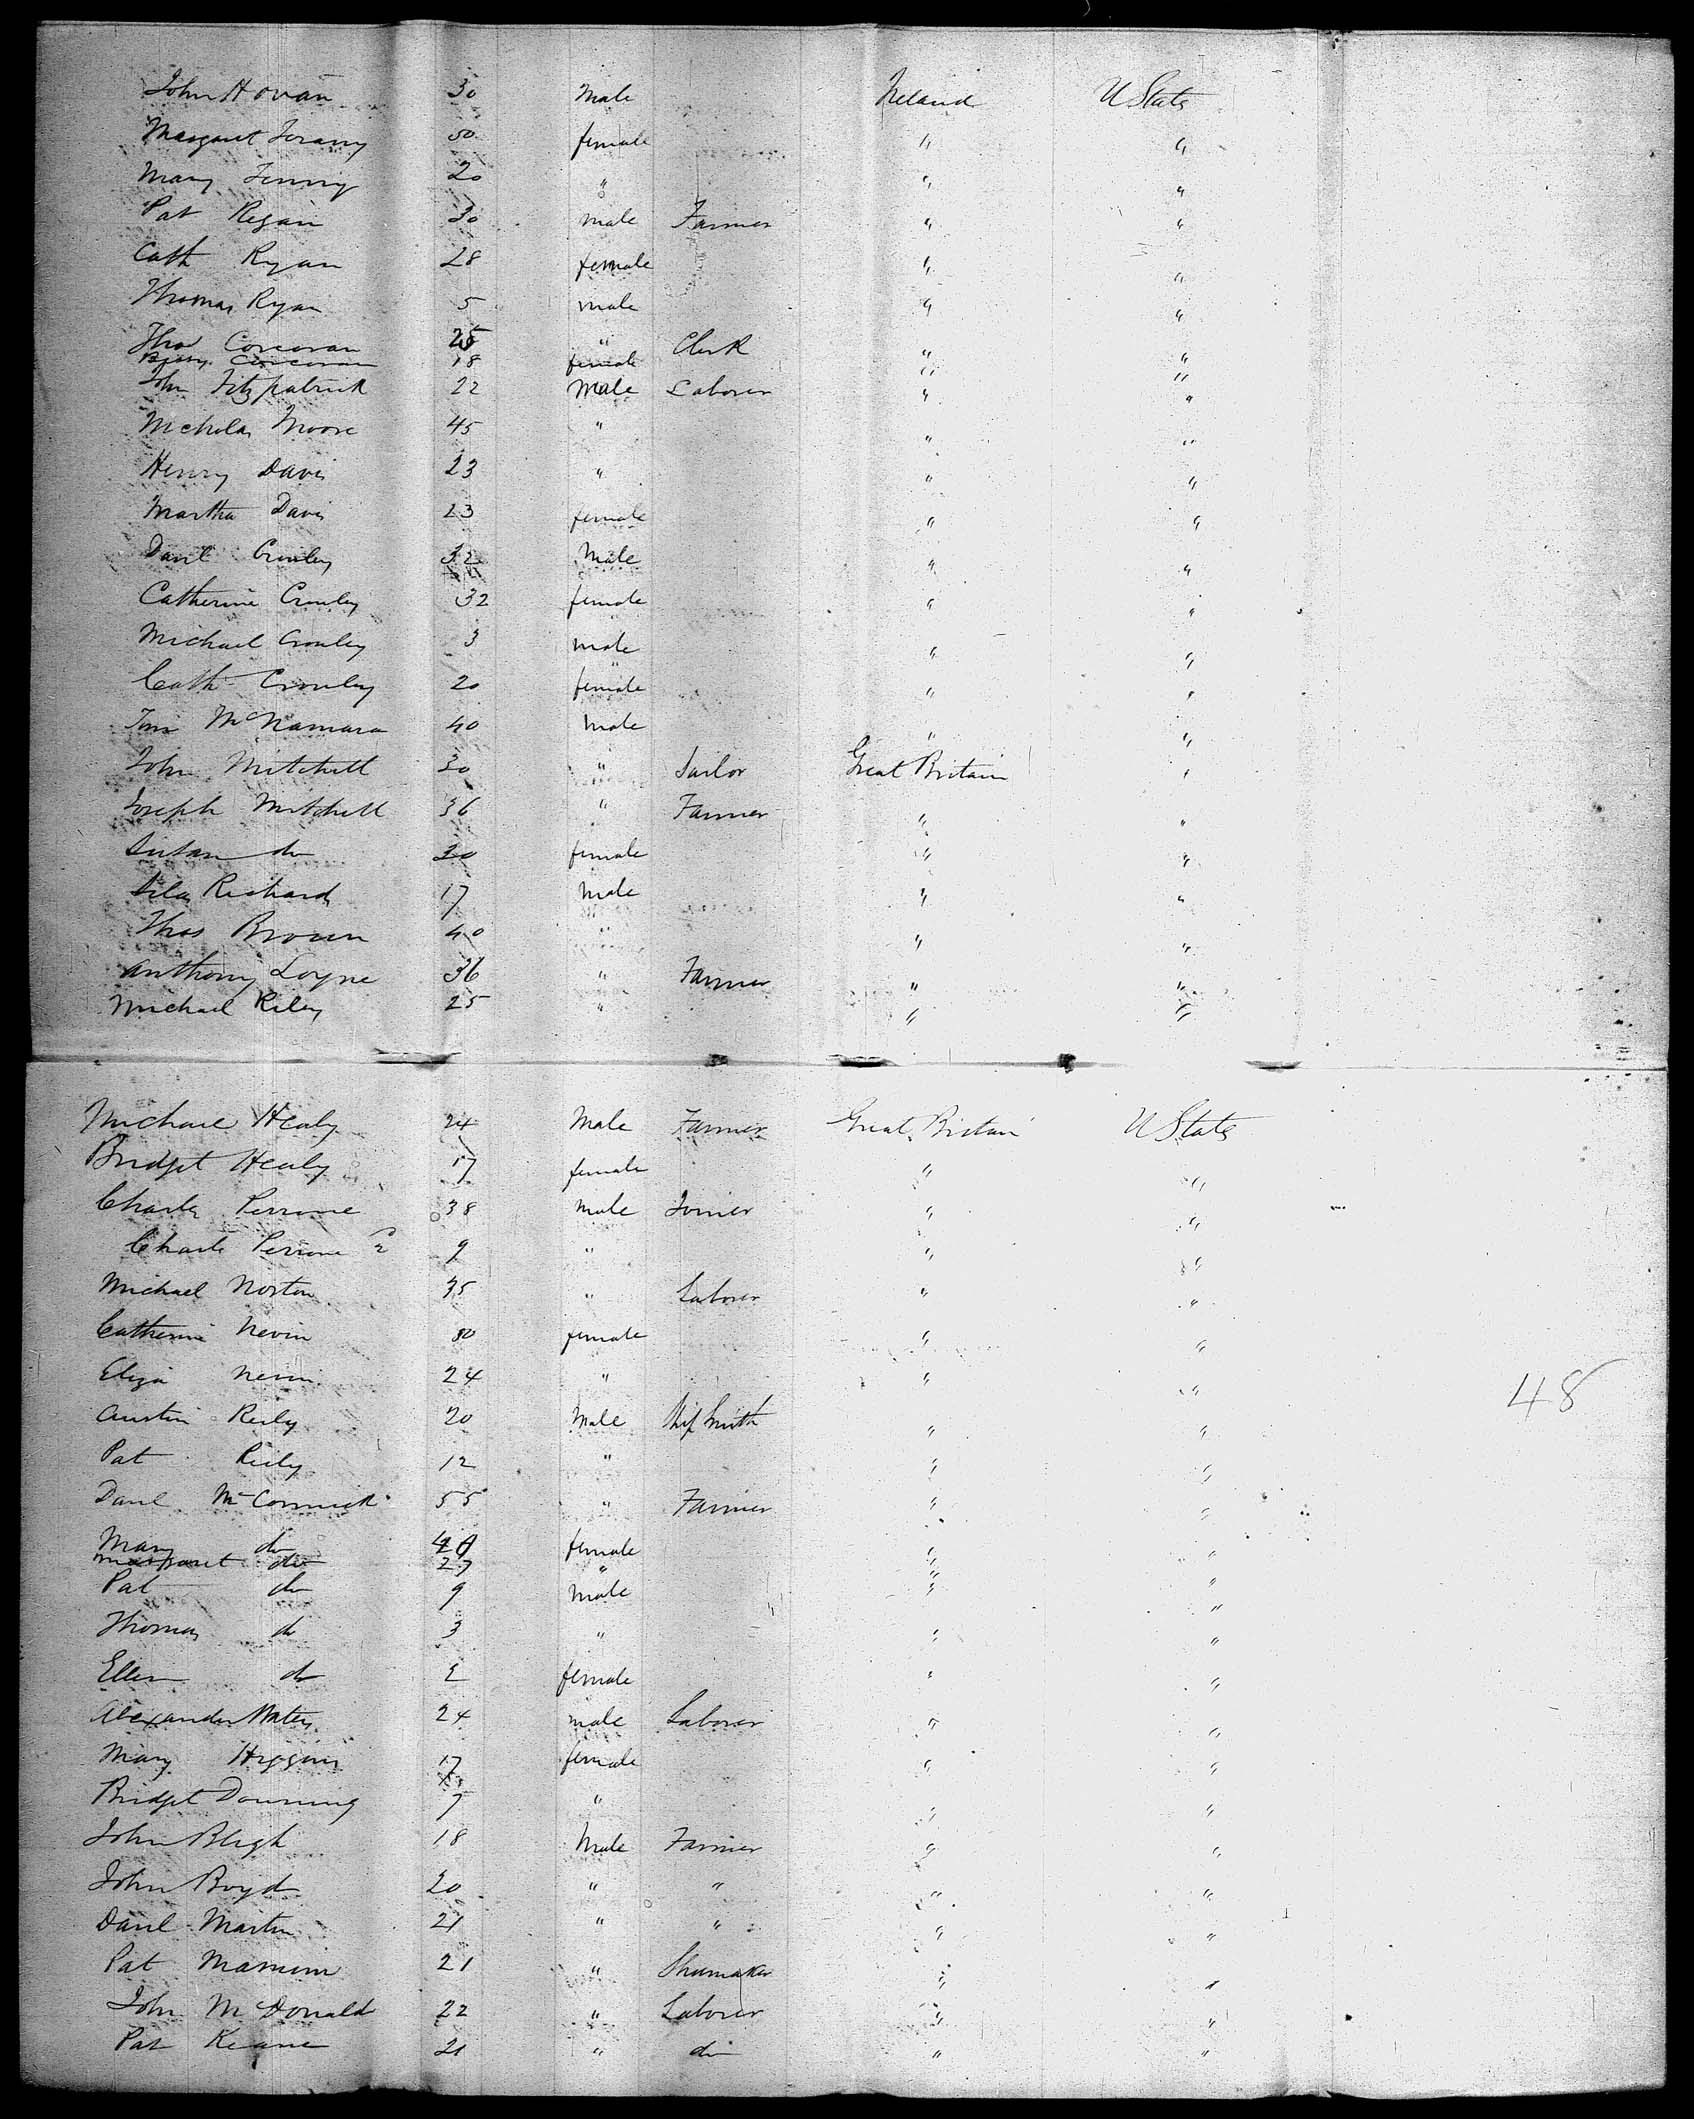 John Hovan 30 Male Ireland U States
Margaret 50 female " "
Mary 20 " " "
Pat Regan 30 male Farmer " "
Cath Ryan 28 female " "
Thomas Ryan 5 male " "
Thos Corcoran 25 " Clerk " "
Corcoran 18 female " "
John Fitzpatrick 22 Male Laborer " "
Nicholas Moore 45 " " "
Henry Davis 23 " " "
Martha Davis 23 female " "
Danl Crowley 32 Male " "
Catherine Crowley 32 female " "
Michael Crowley 3 male " "
Cath Crowley 20 female " "
Tim McNamara 40 Male " "
John Mitchell 30 " Sailor Great Britain "
Joseph Mitchell 36 " Farmer " "
Susan do 30 female " "
Silas Richards 17 Male " "
Thos Brown 40 " " "
Anthony Loyne 36 " Farmer " "
Michael Riley 25 " " "
Michael Healy 24 Male Farmer Great Britain U States
Bridget Healy 17 female " "
Charles Perrine 38 Male Joiner " "
Charles Perrine 2 9 " " "
Michael Norton 35 " Laborer " "
Catherine Nevin female " "
Eliza Nevin 24 " " "
48
Austin Reily 20 Male Smith " "
Pat Reily 12 " " "
Danl McCormick 55 " Farmer " "
Mary do female " "
Margaret do 27 " " "
Pat do 9 Male " "
Thomas do 3 " " "
Ellen do female " "
Alexander Waters 24 male Laborer " "
Mary Higgins 17 female " "
Bridget Downing 7 " " "
John Bligh 18 Male Farmer " "
John Boyd 20 " " " "
Danl Martin 21 " " " "
Pat 21 " Shumaker " "
John McDonald 22 " Laborer " "
Pat Keane 21 " do " "